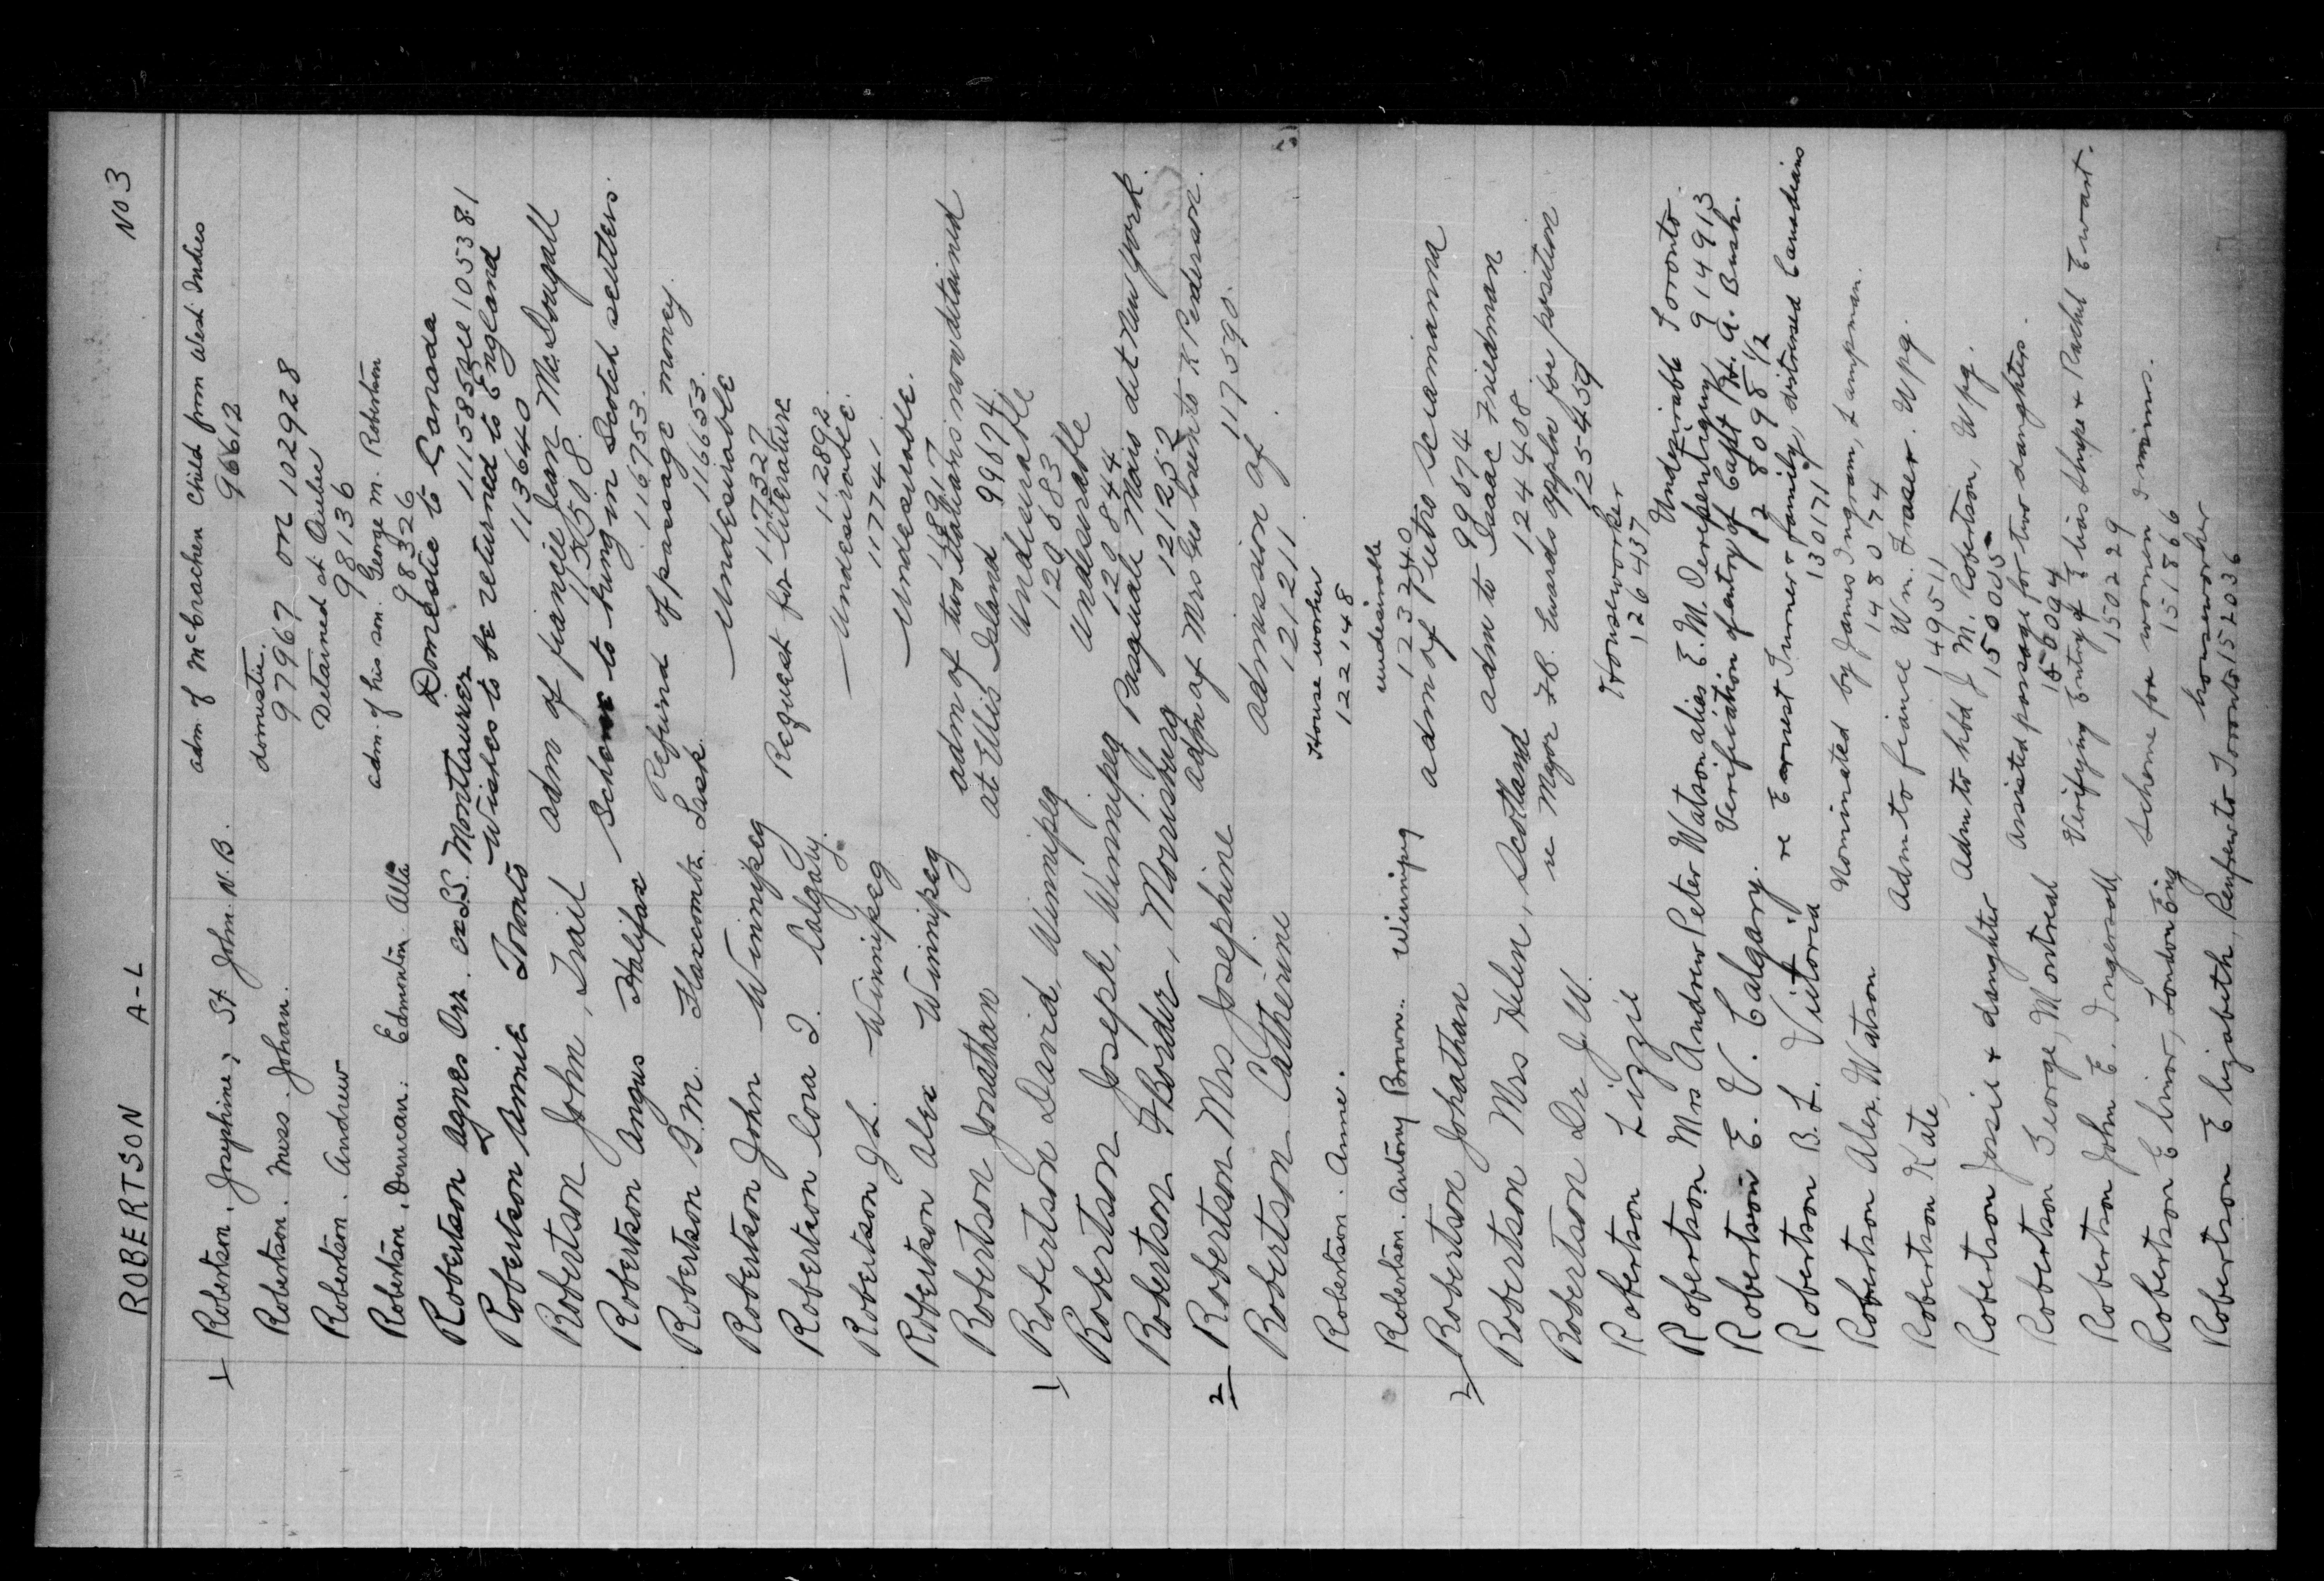 ROBERTSON A-L No 3
1 Robertson. Josephine, St. John. N.B. adm. of McCrachen Child from West Indies
96612
Robertson. Miss. Johan. domestic.
97967 on 102928
Robertson. Andrew Detained at Quebec
98136
Robertson. Duncan. Edmonton. Alta adm. of his son. George M. Robertson
98326
Robertson Agnes Orr. ex SS. Montauren Domestic to Canada
111585 See 105381
Robertson Annie Toronto Wishes to be returned to England
113640
Robertson John, Trail adm of fiancée Jean McDougall
115508
Robertson Angus Halifax Scheme to bring in Scotch settlers.
116753.
Robertson G.M. Flaxcombe Sask. Refund of passage money.
116653.
Robertson John Winnipeg Undesirable
117327
Robertson Cora I. Calgary. Request for literature
112892
Robertson J L. Winnipeg Undesirable.
117741
Robertson Alex Winnipeg Undesirable.
118917
Robertson Jonathan adm of two Italians now detained
at Ellis Island 99674
1 Robertson David, Winnipeg Undesirable
120683
Robertson Joseph, Winnipeg Undesirable
120844
Robertson F Bordur, Morrisburg Pasquale Mais det New York.
121252
2 Robertson Mrs Josephine adm of Mrs Gus to K Pederson.
117590.
Robertson Catherine admission of
121211
Robertson. Anne. House worker
122148
Robertson. Antony Brown. Winnipeg undesirable
123240
2 Robertson Johathan adm of Pietro Sciamanna
99674
Robertson Mrs Helen, Scotland adm to Isaac Friedman
124408
Robertson Dr J.W. re Major F.B. Edwards appln for position
125459
Robertson Lizzie Houseworker
126437
Robertson Mrs Andrew Peter Watson alias E.M. Derepentigny Undesirable Toronto.
914913
Robertson E. V. Calgary. Verification of entry of Capt H. A. Bush.
128098 1/2
Robertson B. L. Victoria re Earnest Turner & family, distressed Canadians
130171
Robertson Alex. Watson Nominated by James Ingram, Lampman.
148074
Robertson Kate, Adm to fiance Wm. Fraser. Wpg.
149511
Robertson Jossie & daughter Adm to hbd J M. Robertson, Wpg.
150005
Robertson George, Montreal Assisted passage for two daughters.
150094
Robertson John E. Ingersoll, Verifying Entry of Elias Shupe & Rachel Ewart.
150229
Robertson Elinor, London Eng Scheme for women immns.
151866
Robertson Elizabeth, Renfrew to Toronto houseworker
152036